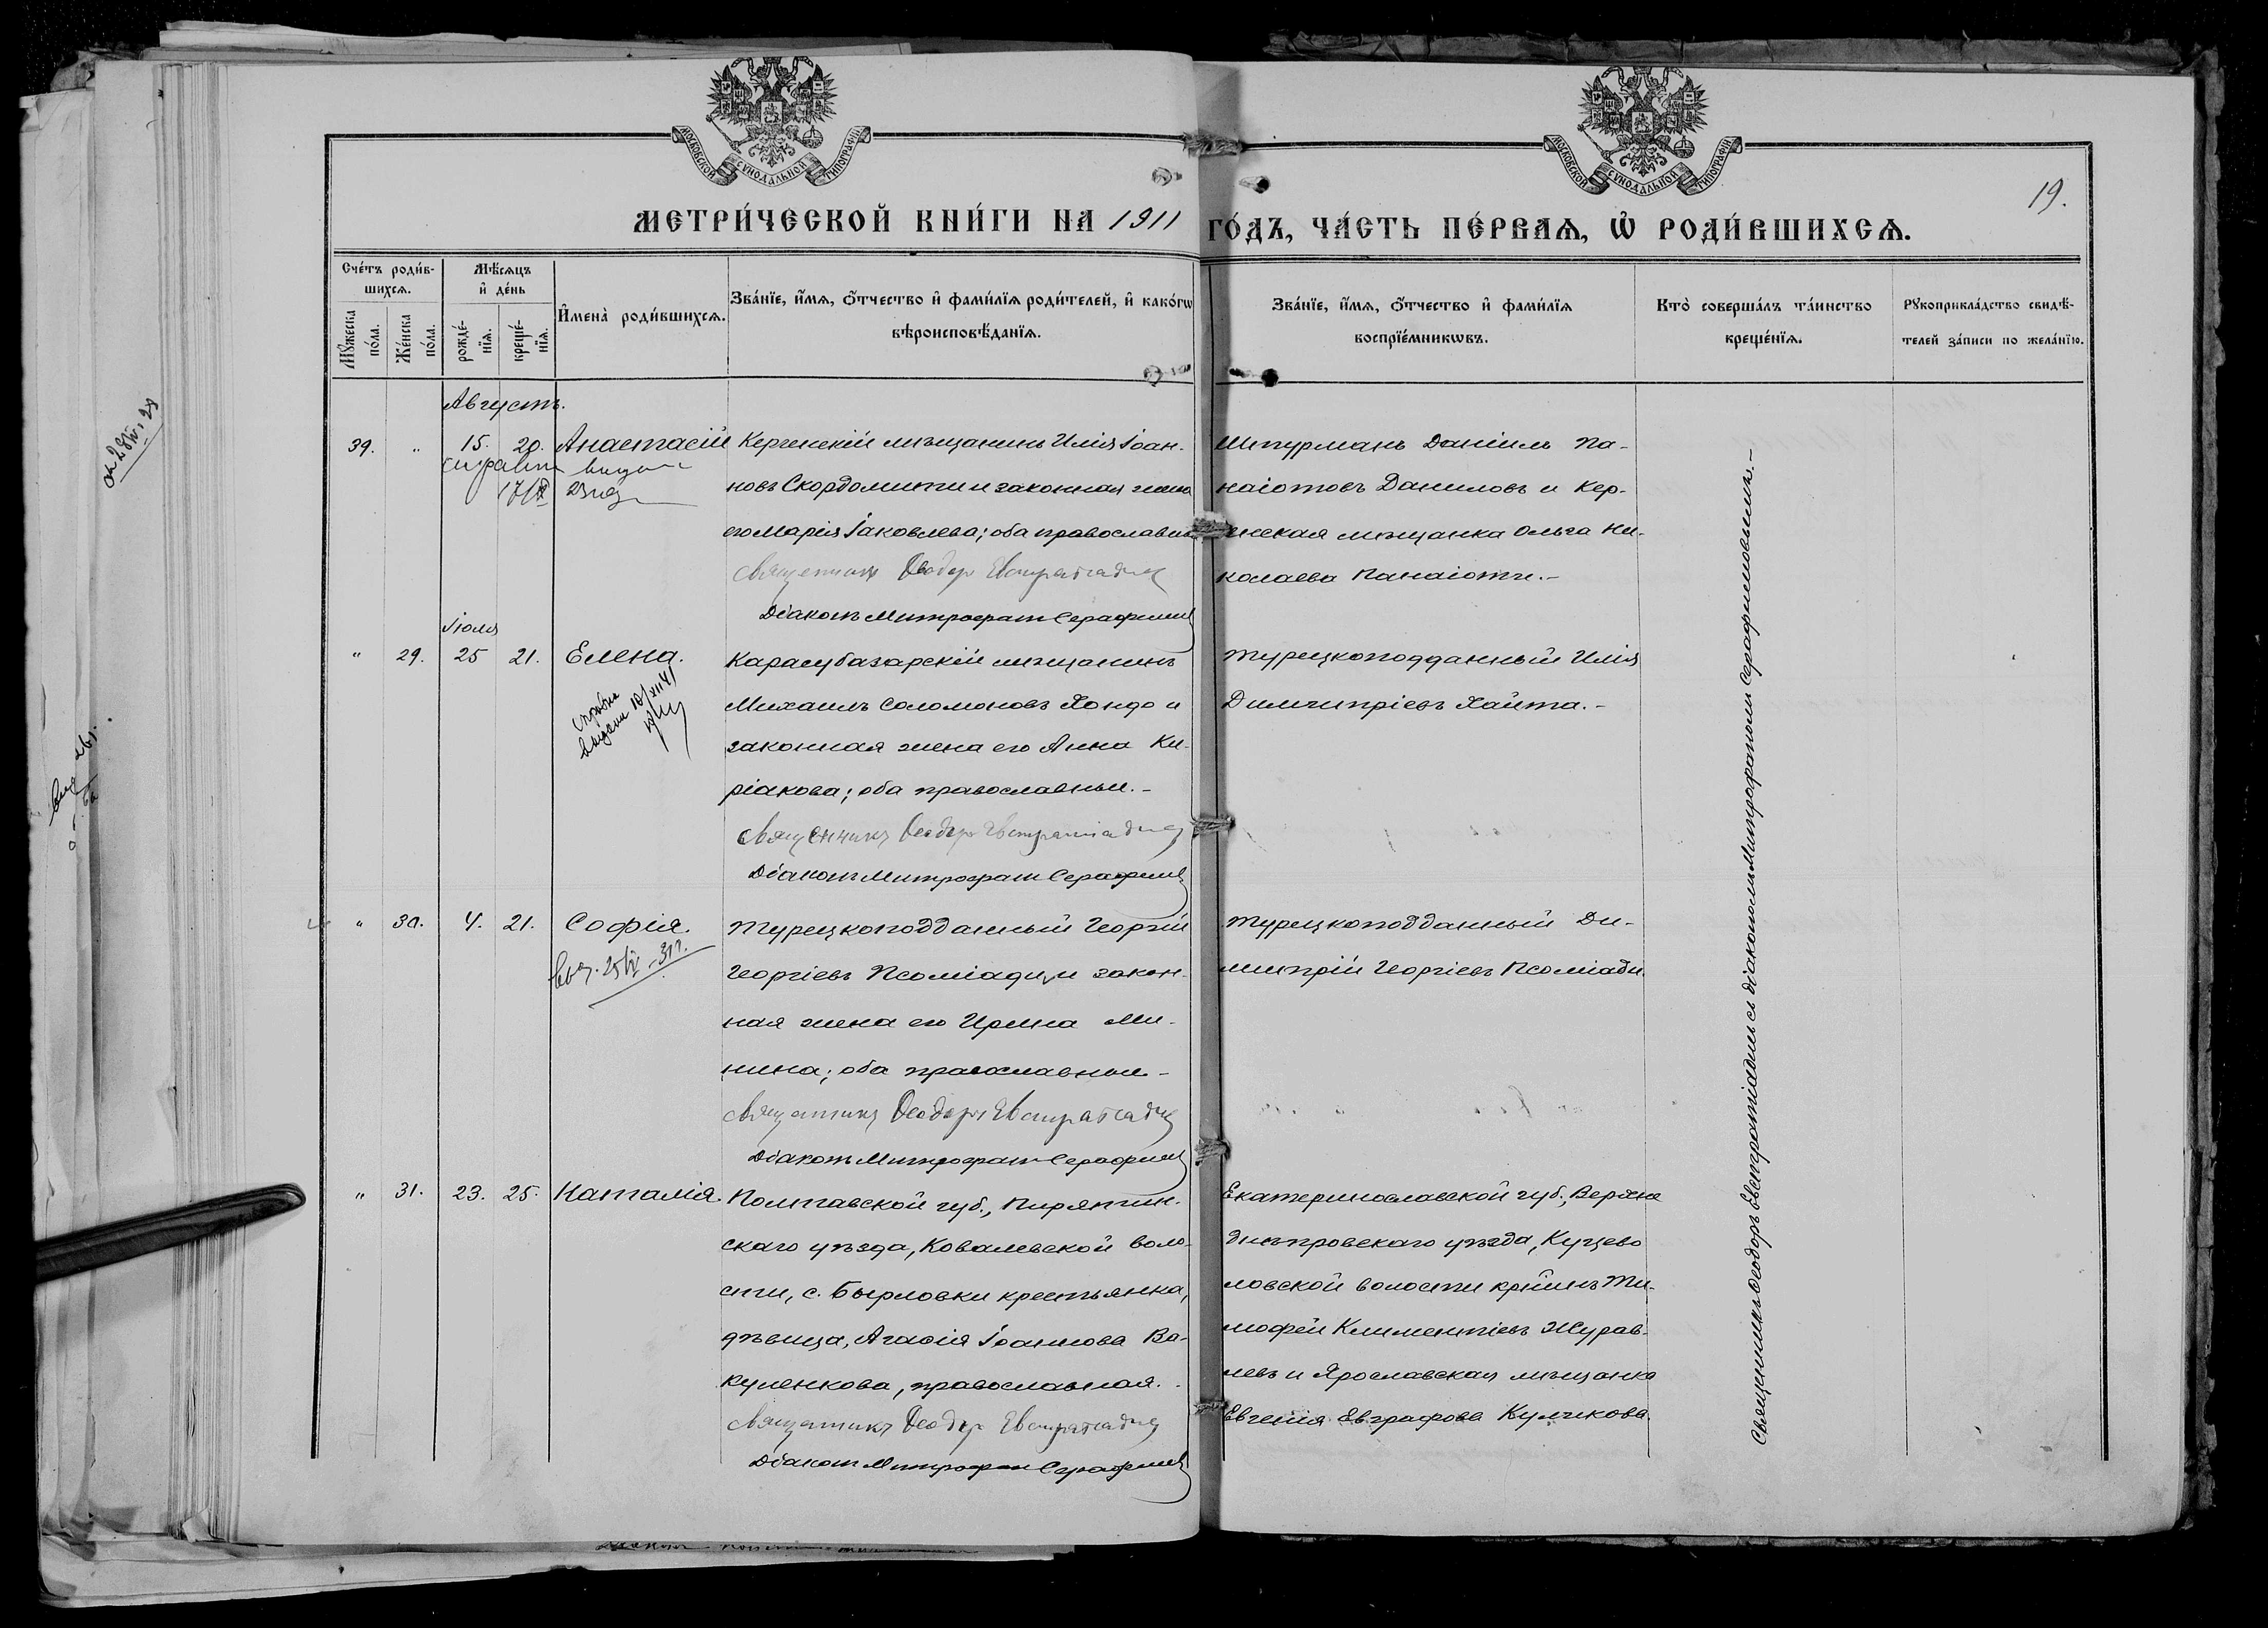 МОСКОВСКОЙ СѴНОДАЛЬНОЙ ТИПОГРАФІИ
МОСКОВСКОЙ СѴНОДАЛЬНОЙ ТИПОГРАФІИ
19.
МЕТРИ́ЧЕСКОЙ КНИ́ГИ НА 1911 ГО́ДЪ, ЧА́СТЬ ПЕ́РВАѦ, Ѡ҆ РОДИ́ВШИХСѦ.
Сче́тъ роди́в-
шихсѧ.
Мꙋ́жеска по́ла.
Же́нска по́ла.
Мѣ́сѧцъ
и҆ де́нь
рожде́-
нїѧ.
креще́-
нїѧ.
И҆мена̀ роди́вшихсѧ.
Зва́нїе, и҆́мѧ, ѻ҆́тчество и҆ фами́лїѧ роди́телей, и҆ како́гѡ
вѣроисповѣ́данїѧ.
Зва́нїе, и҆́мѧ, ѻ҆́тчество и҆ фами́лїѧ
воспрїе́мникѡвъ.
Кто̀ соверша́лъ та́инство
креще́нїѧ.
Рꙋкоприкла́дство свидѣ́-
телей за́писи по жела́нїю.
Августъ.
39. " 15. 20. Анастасій
Керченскій мѣщанинъ Илія Іоан-
новъ Скордомити и законная жена
его Марія Іаковлева; оба православные
Священникъ Ѳеодоръ Евстратіадисъ
Діаконъ Митрофанъ Серафимовъ
Штурманъ Даніилъ Па-
наіотовъ Даниловъ и Кер-
ченская мѣщанка Ольга Ни-
колаева Панаіоти.-
Іюля
" 29. 25 21. Елена.
справка
выдана
Карасубазарскій мѣщанинъ
Михаилъ Соломоновъ Хондо и
законная жена его Анна Ки-
ріакова; оба православные.-
Священникъ Ѳеодоръ Евстратіадисъ
Діаконъ Митрофанъ Серафимовъ
Турецкоподданный Илія
Димитріевъ Хайта.-
" 30. 4. 21. Софія.
Турецкоподданный Георгій
Георгіевъ Псоміади, и закон-
ная жена его Ирина Ми-
нина; оба православные-
Священникъ Ѳеодоръ Евстратіадисъ
Діаконъ Митрофанъ Серафимовъ
Турецкоподданный Ди-
митрій Георгіевъ Псоміади.
" 31. 23. 25. Наталія.
Полтавской губ., Пирятин-
скаго уѣзда, Ковалевской воло-
сти, с. Бырловки крестьянка,
дѣвица, Агафія Іоаннова Ва-
куленкова, православная.
Священникъ Ѳеодоръ Евстратіадисъ
Діаконъ Митрофанъ Серафимовъ
Екатеринославской губ., Верхне
днѣпровскаго уѣзда, Куцево
ловской волости кр-нинъ Ти-
мофей Климентіевъ Журав-
левъ и Ярославская мѣщанка
Евгенія Евграфова Куличкова.
Священникъ Ѳеодоръ Евстратіадисъ съ діакономъ Митрофаномъ Серафимовымъ.-